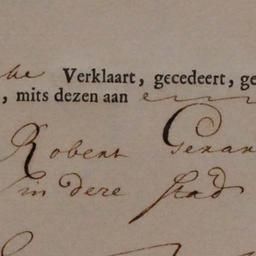 Verklaart, gecedeert, ge
, mits dezen aan
Robert Gerar
in dese stad